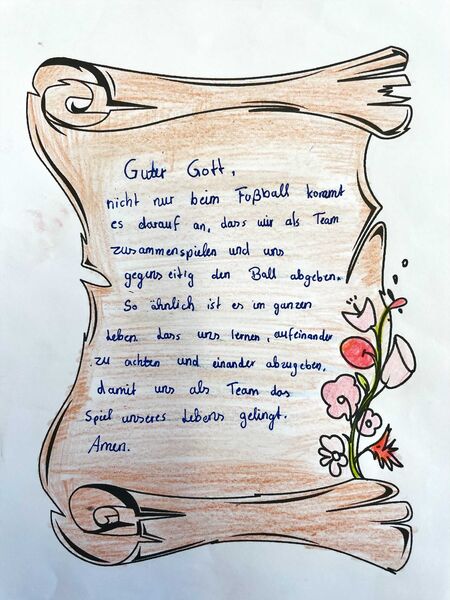 Guter Gott,
nicht nur beim Fußball kommt
es darauf an, dass wir als Team
zusammenspielen und uns
gegenseitig den Ball abgeben.
So ähnlich ist es im ganzen
Leben. Lass uns lernen, aufeinander
zu achten und einander abzugeben,
damit uns als Team das
Spiel unseres Lebens gelingt.
Amen.